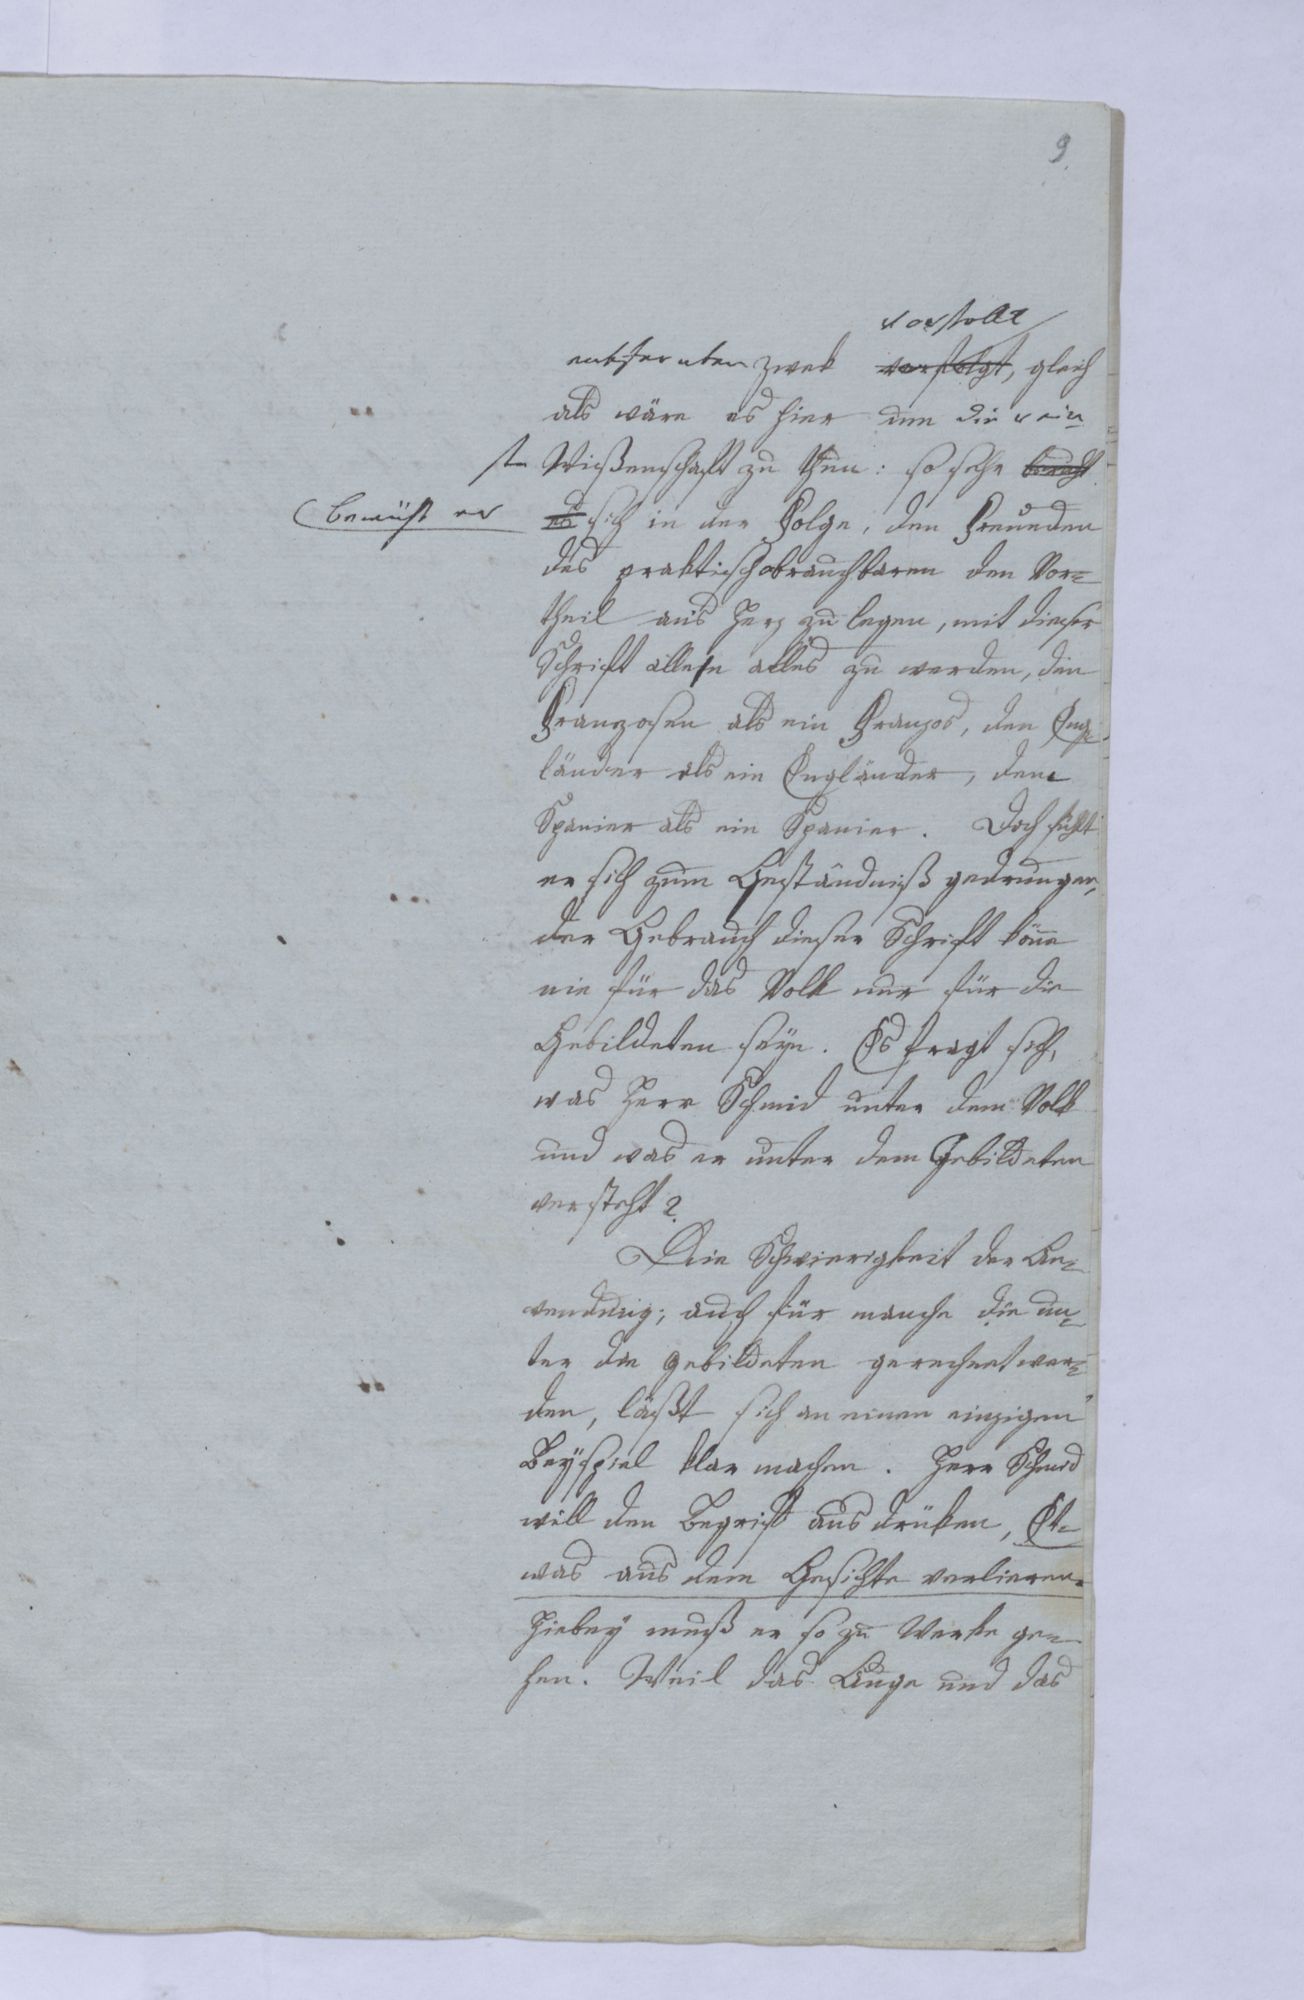 9.
vorstellt
entfernten Zwek verfolgt, gleich
als wäre es hier um die rein
ste Wißenschaft zu thun: so sehr
bemüht er
es sich in der Folge, den Freunden
des praktischbrauchbaren den Vor=
theil ans Herz zu legen, mit dieser
Schrift allen alles zu werden, den
Franzosen als ein Franzos, den Eng=
länder als ein Engländer, dem
Spanier als ein Spanier. Doch fühlt
er sich zum Geständniß gedrungen,
der Gebrauch dieser Schrift könne
nie für das Volk nur für die
Gebildeten seyn. Es fragt sich,
was Herr Schmid unter dem Volk
und was er unter dem Gebildeten
versteht?
Die Schwierigkeit der An=
wendung, auch für manche die un=
ter die gebildeten gerechnet wer=
den, läßt sich an einem einzigen
Beyspiel klar machen. Herr Schmid
will den Begriff ausdrüken, Et=
was aus dem Gesichte verlieren.
Hiebey muß er so zu Werke ge=
hen. Weil das Auge und das